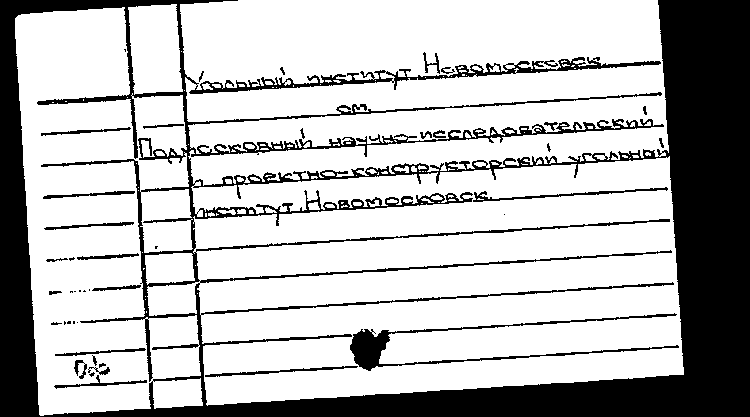 Угольный институт. Новомосковск.
см.
Подмосковный научно-исследовательский
и проектно-конструкторский угольный
институт. Новомосковск.